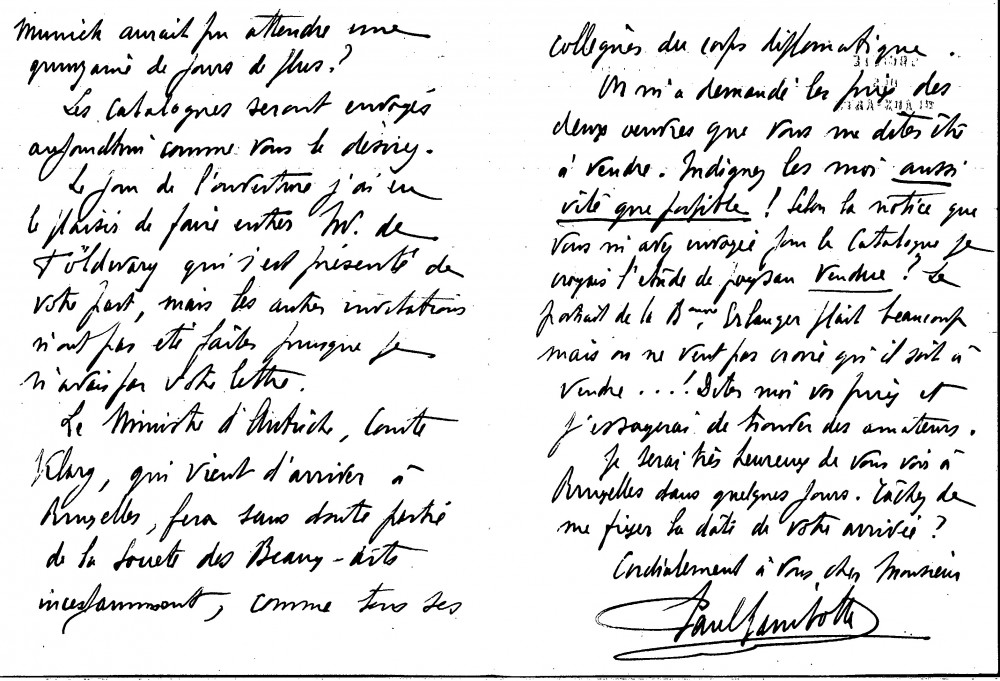 Munich aurait pu attendre une
quinzaine de jours de plus ?
Les catalogues seront envoyés
aujourdhui comme vous le désirez.
Le jour de l'ouverture j'ai eu
le plaisir de faire entrer Mr. de
Földvary qui s'est présenté de
votre part, mais les autres invitations
n'ont pas été faites puisque je
n'avais pas votre lettre.
Le Ministre d'Autriche, Comte
Clary, qui vient d'arriver à
Bruxelles, fera sans doute partie
de la Société des Beaux-arts
incessamment, comme tous ses
collègues du corps diplomatique.
On m'a demandé les prix des
deux œuvres que vous me dites être
à vendre. Indiquez les moi aussi
vite que possible ! Selon la notice que
vous m'avez envoyée pour le Catalogue je
croyais l'étude de paysan vendue ? Le
portrait de la Bonne Erlanger plait beaucoup
mais on ne veut pas croire qu'il soit à
vendre . . . . ! Dites moi vos prix et
j'essayerai de trouver des amateurs.
Je serai très heureux de vous voir à
Bruxelles dans quelques jours. Tâchez de
me fixer la date de votre arrivée ?
Cordialement à vous cher Monsieur
Paul Lambotte